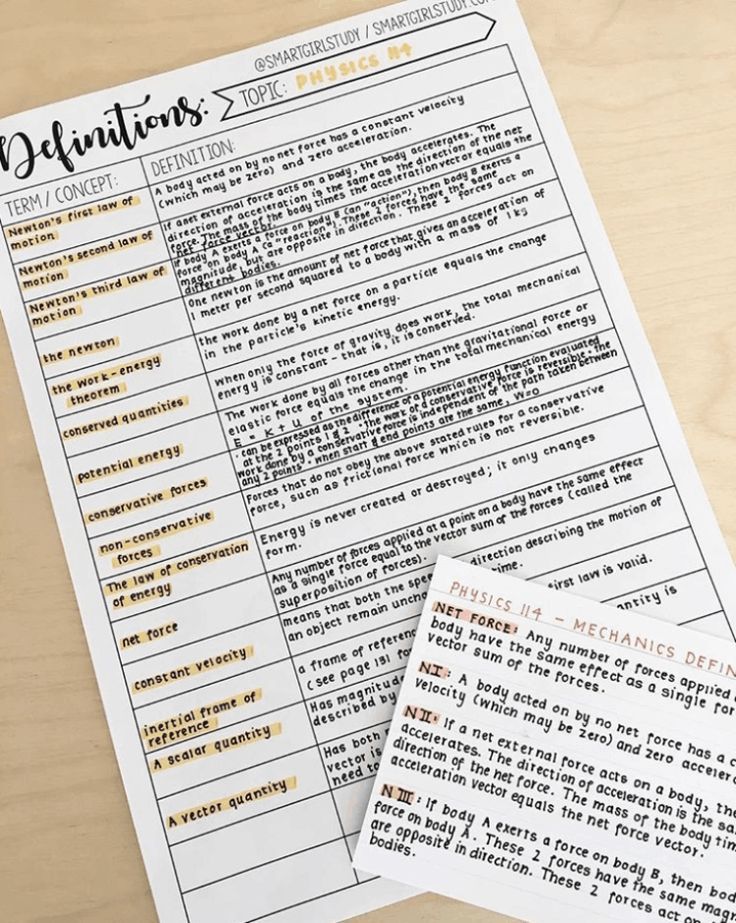 @SMARTGIRLSTUDY / SMARTGIRLSTUDY.COM
Definitions:
TOPIC: PHYSICS 114
TERM / CONCEPT:
DEFINITION:
Newton's first law of
motion
A body acted on by no net force has a constant velocity
(which may be zero) and zero acceleration.
Newton's second law of
motion
If a net external force acts on a body, the body accelerates. The
direction of acceleration is the same as the direction of the net
force. The mass of the body times the acceleration vector equals the
net force vector.
Newton's third law of
motion
If body A exerts a force on body B (an "action"), then body B exerts a
force on body A (a "reaction"). These 2 forces have the same
magnitude, but are opposite in direction. These 2 forces act on
different bodies.
the newton
One newton is the amount of net force that gives an acceleration of
1 meter per second squared to a body with a mass of 1 kg
the work-energy
theorem
the work done by a net force on a particle equals the change
in the particle's kinetic energy.
conserved quantities
when only the force of gravity does work, the total mechanical
energy is constant - that is, it is conserved.
potential energy
The work done by all forces other than the gravitational force or
elastic force equals the change in the total mechanical energy
E = K + U of the system.
conservative forces
· can be expressed as the difference of a potential energy function evaluated
at the 2 points 1 & 2 · the work of a conservative force is reversible · the
work done by a conservative force is independent of the path taken between
any 2 points · when start & end points are the same, W=0
non-conservative
forces
Forces that do not obey the above stated rules for a conservative
force, such as frictional force which is not reversible.
The law of conservation
of energy
Energy is never created or destroyed; it only changes
form.
net force
Any number of forces applied at a point on a body have the same effect
as a single force equal to the vector sum of the forces (called the
superposition of forces).
constant velocity
means that both the direction describing the motion of
an object remain time.
inertial frame of
reference
a frame of first law is valid.
(see page 131
A scalar quantity
Has quantity is
described by
A vector quantity
Has both
vector is
need to
PHYSICS 114 - MECHANICS
NET FORCE: Any number of forces applied
body have the same effect as a single
vector sum of the forces.
NI: A body acted on by no net force has a
velocity (which may be zero) and zero
NII: If a net external force acts on a body,
accelerates. The direction of acceleration is the
direction of the net force. The mass of the body
acceleration vector equals the net force vector.
NIII: If body A exerts a force on body B, then
force on body A. These 2 forces have the same
are opposite in direction. These 2 forces act
bodies.